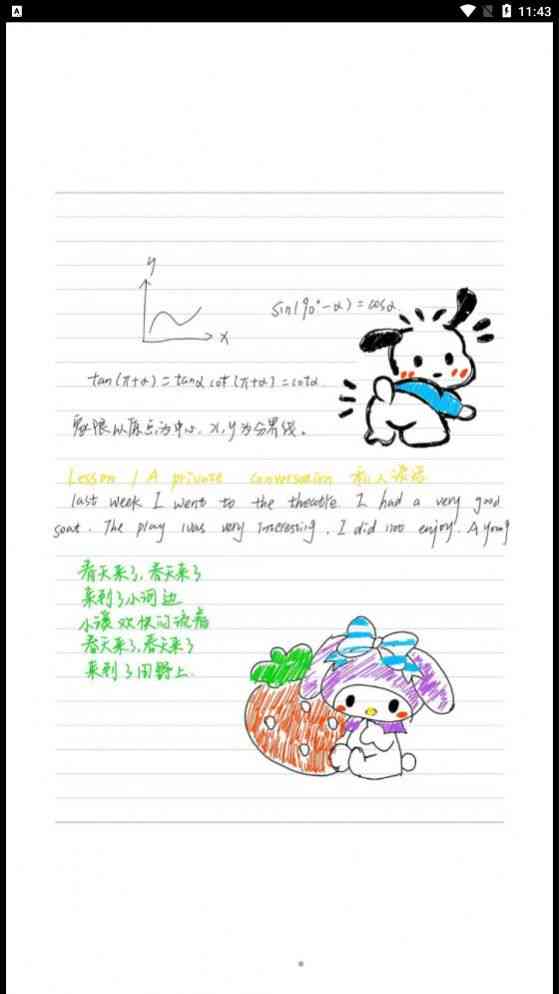 11:43
y
sin(90°-α)=cosα
x
tan(π+α)=tanα cot(π+α)=cotα.
象限以原点为中心，x，y为分界线。
Lesson 1 A private conversation 私人谈话
last week I went to the theatre. I had a very good
seat. The play was very interesting. I did not enjoy. A young
春天来了，春天来了
来到了小河边
小溪欢快的流着
春天来了，春天来了
来到了田野上.